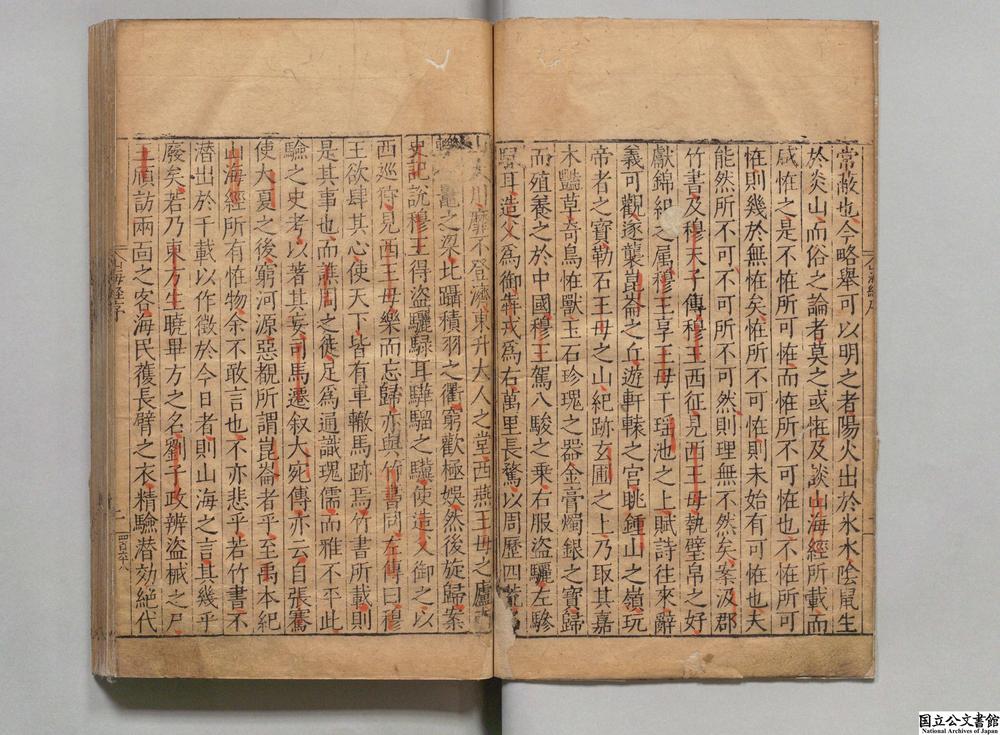 常蔽也今略舉可以明之者陽火出於氷水陰鼠生
於炎山而俗之論者莫之或怪及談山海經所載而
咸怪之是不怪所可怪而怪所不可怪也不怪所可
怪則幾於無怪矣怪所不可怪則未始有可怪也夫
能然所不可不可所不可然則理無不然矣案汲郡
竹書及穆天子傳穆王西征見西王母執璧帛之好
獻錦組之属穆王享王母于瑶池之上賦詩往來辭
義可觀遂襲崑崙之丘遊軒轅之宫眺鍾山之嶺玩
帝者之寶勒石王母之山紀跡玄圃之上乃取其嘉
木豔草奇鳥怪獸玉石珍瑰之器金膏燭銀之寶歸
而殖養之於中國穆王駕八駿之乗右服盗驪左驂
耳造父爲御犇戎爲右萬里長騖以周歷四荒
川靡不登濟東升大人之堂西燕王母之廬
鼉之梁北躡積羽之衢窮歡極娛然後旋歸案
史記說穆王得盗驪騄耳驊騮之驥使造父御之以
西巡狩見西王母樂而忘歸亦與竹書同左傳曰穆
王欲肆其心使天下皆有車轍馬跡焉竹書所載則
是其事也而譙周之徒足爲通識瑰儒而雅不平此
驗之史考以著其妄司馬遷叙大宛傳亦云自張騫
使大夏之後窮河源惡覩所謂崑崙者乎至禹本紀
山海經所有怪物余不敢言也不亦悲乎若竹書不
潜出於千載以作徵於今日者則山海之言其幾乎
廢矣若乃東方生曉畢方之名劉子政辨盗械之尸
王頎訪兩面之客海民獲長臂之衣精驗潜効絶代
山海經序
國立公文書館
National Archives of Japan